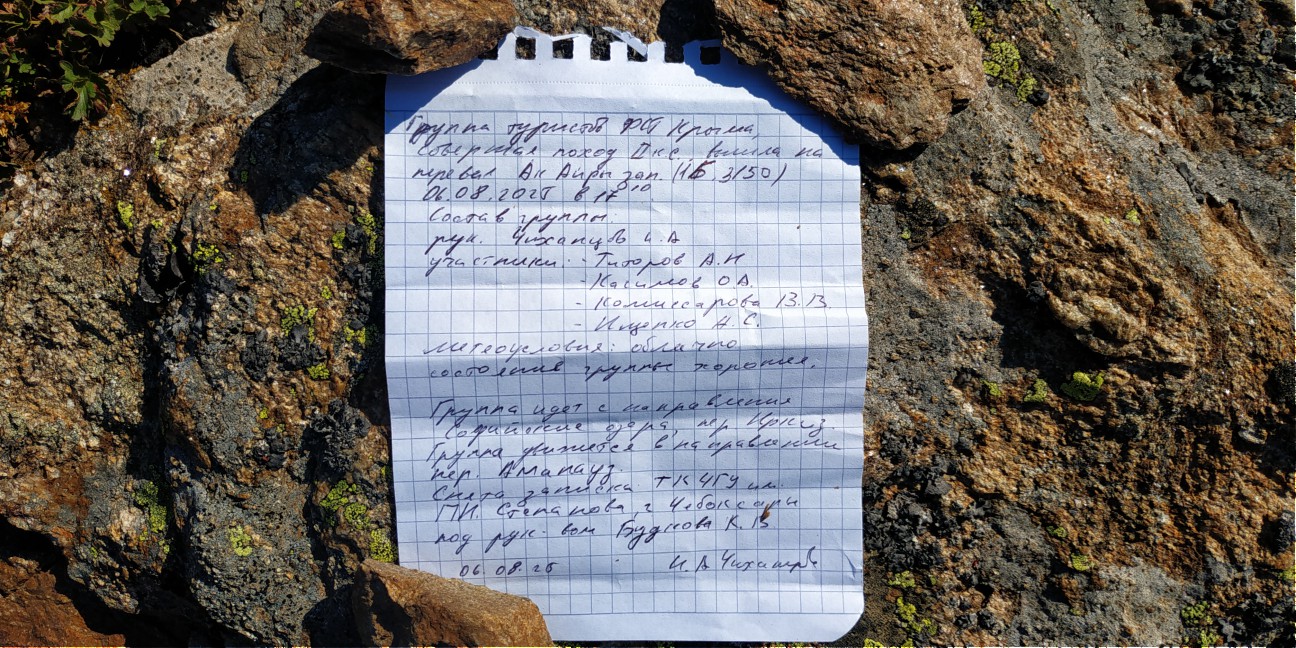 Группа туристов ФСТ Крыма,
совершая поход II к.с. вышла на
перевал Ак Айры зап. (1Б, 3150)
06.08.2025 в 17 10
Состав группы:
рук. Чиханцов И.А
участники: - Титоров А.Н
- Касимов О.А.
- Комиссарова В.В.
- Ищенко А.С.
Метеоусловия: облачно
состояние группы хорошее.
Группа идет с направления
Софийские озера, пер. Иркиз.
Группа движется в направлении
пер. Аманауз.
Снята записка ТК ЧГУ им.
И. Степанова, г. Чебоксары
под рук-вом Будкова К.В
06.08.25 И.А